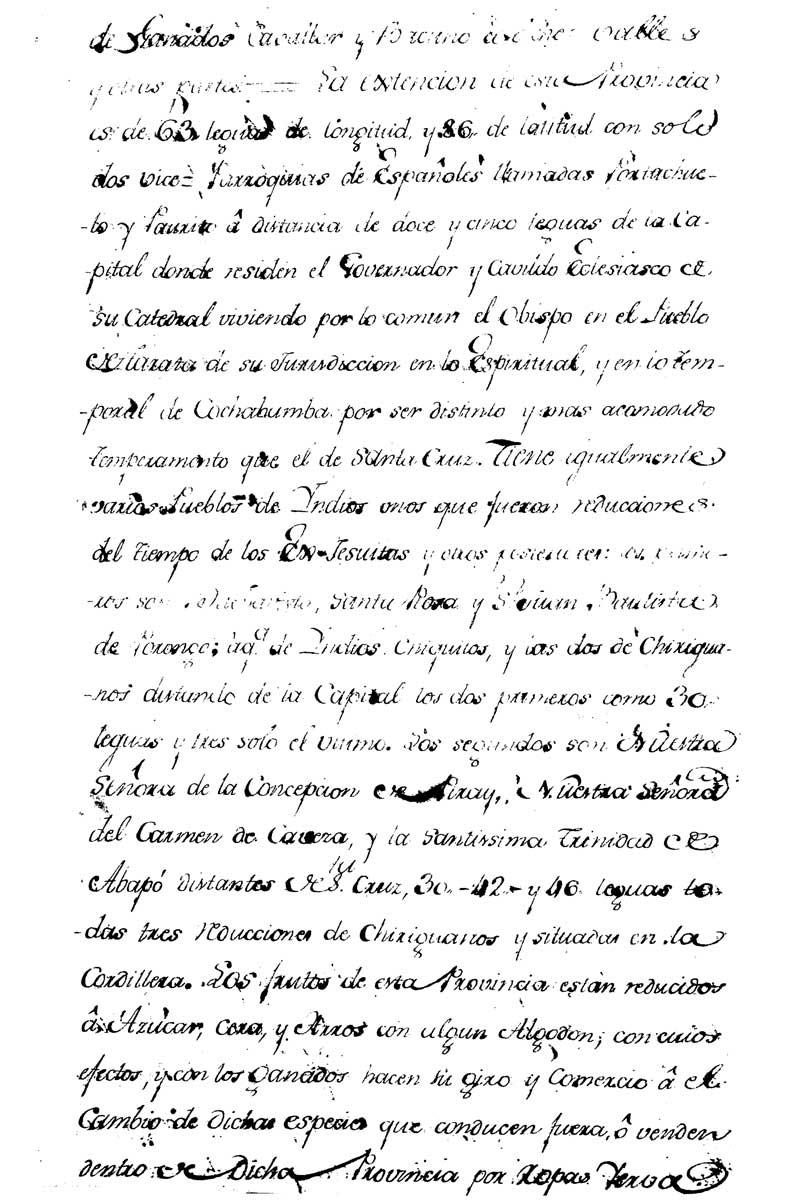 de Ganados Cavallar y Bacuno de che Valle s
y otras partes == La extencion de esta Provincia
es de 63 leguas de longitud, y 86 de latitud con solo
dos vice= Parroquias de Españoles llamadas Portachue-
-lo y Paurito â distancia de doce y cinco leguas de la Ca-
-pital donde residen el Governador y Cavildo Eclesiasco de
su Catedral viviendo por lo comun el Obispo en el Pueblo
de Tarata de su Jurisdiccion en lo Espiritual, y en lo tem-
-poral de Cochabumba por ser distinto y mas acomodado
temperamento que el de Santa Cruz. Tiene igualmente
varios Pueblos de Indios unos que fueron reducciones
del tiempo de los Ex-Jesuitas y otros los prime-
-ros son Santa Rosa y Sn Juan Bautista
de Porongo; aql de Indios Chiquitos, y las dos de Chirigua-
-nos distando de la Capital los dos primeros como 30
leguas y tres solo el ultimo. Los segundos son Nuestra
Señora de la Concepcion de Piray, Nuestra Señora
del Carmen de Cavera, y la Santissima Trinidad de
Abapó distantes de Sta Cruz, 30 - 42 - y 46 leguas to-
-das tres reducciones de Chiriguanos y situadas en la
Cordillera. Los frutos de esta Provincia están reducidos
â Azúcar, cera, y Arros con algun Algodon; con cuios
efectos, y con los ganados hacen su giro y Comercio â el
Cambio de dichas especies que conducen fuera, ô venden
dentro de Dicha Provincia por Ropas Yerva